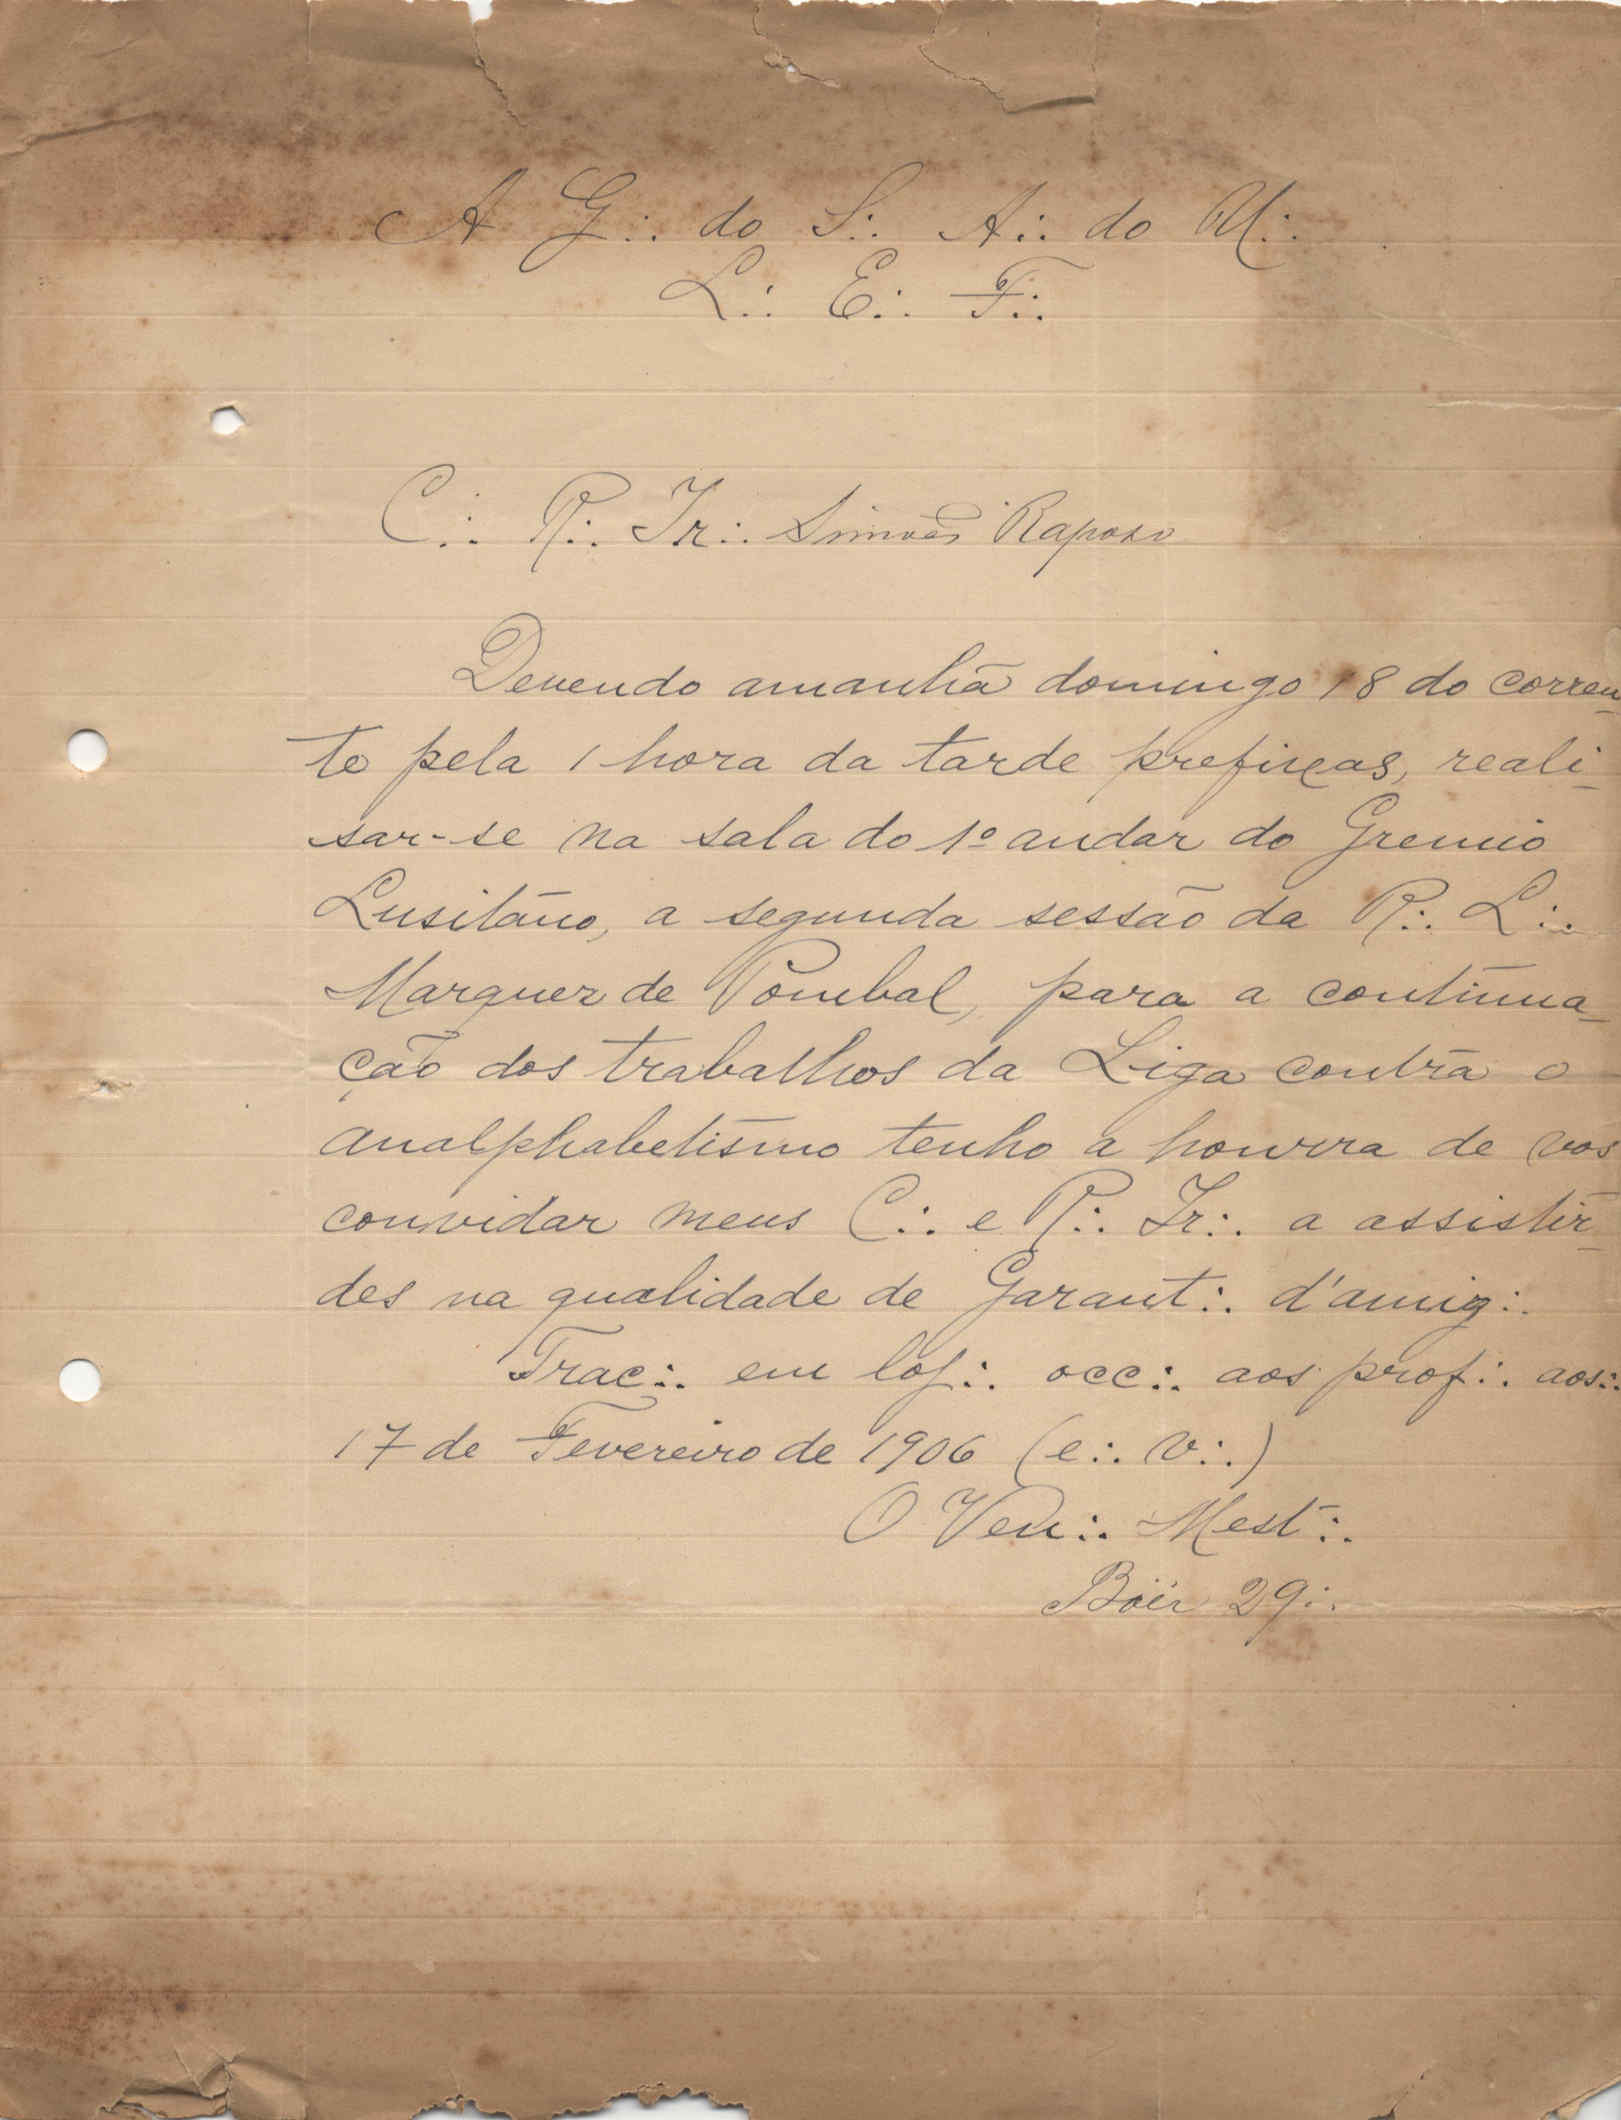 A G∴ do S∴ A∴ do U∴
L∴ E∴ F∴
C∴ R∴ Ir∴ Simões Raposo
Devendo amanhã domingo 18 do corren-
te pela 1 hora da tarde prefixas, reali-
sar-se na sala do 1º andar do Gremio
Lusitano, a segunda sessão da R∴ L∴
Marquez de Pombal, para a continua-
ção dos trabalhos da Liga contra o
analphabetismo tenho a honrra de vos
convidar meus C∴ e R∴ Ir∴ a assistir-
des na qualidade de Garant∴ d'amiz∴
Trac∴ em loj∴ occ∴ aos prof∴ aos∴
17 de Fevereiro de 1906 (e∴ v∴)
O Ven∴ Mest∴
29∴